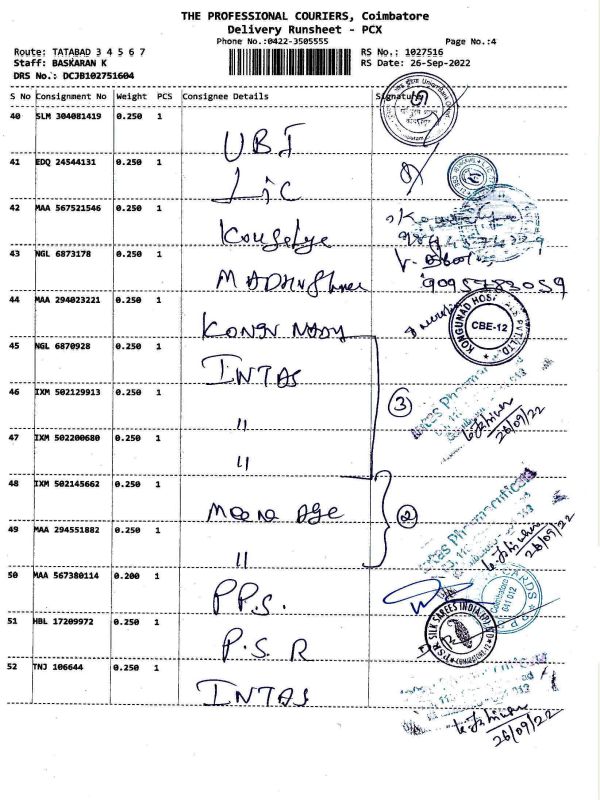 THE PROFESSIONAL COURIERS, Coimbatore
Delivery Runsheet - PCX
Phone No.:0422-3505555
Page No.:4
Route: TATABAD 3 4 5 6 7
RS No.: 1027516
Staff: BASKARAN K
RS Date: 26-Sep-2022
DRS No.: DCJB102751604
S No Consignment No Weight PCS Consignee Details Signature
40 SLM 304081419 0.250 1
UBI
41 EDQ 24544131 0.250 1
LIC
42 MAA 567521546 0.250 1
43 NGL 6873178 0.250 1
9095783059
44 MAA 294023221 0.250 1
KONGUNAD HOSPITALS PVT. LTD
CBE-12
45 NGL 6870928 0.250 1
INTAS
46 IXM 502129913 0.250 1
"
3
26/09/22
47 IXM 502200680 0.250 1
"
48 IXM 502145662 0.250 1
Meena Age
2
Intas Pharmaceuticals
49 MAA 294551882 0.250 1
"
26/09/22
50 MAA 567380114 0.200 1
P.P.S.
CARDS
Coimbatore
641 012
51 HBL 17209972 0.250 1
P.S.R
P.S.R. SILK SAREES INDIA (P) LTD
52 TNJ 106644 0.250 1
INTAS
26/09/22